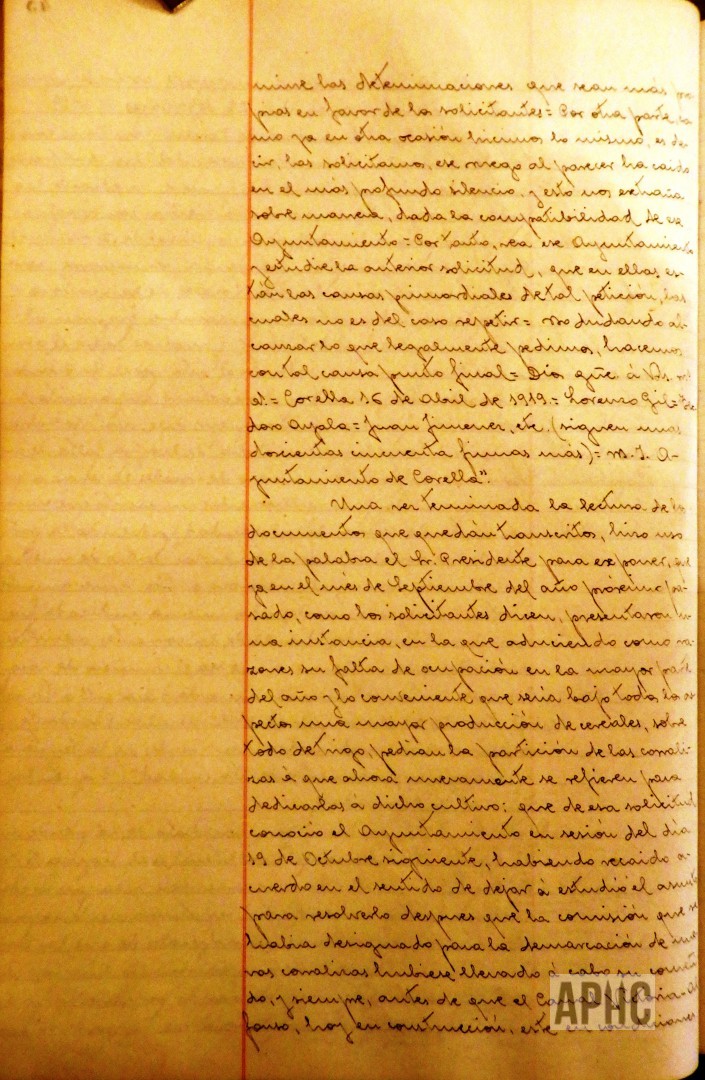 mine las determinaciones que sean más pro
pias en favor de los solicitantes = Por otra parte co
mo ya en otra ocasión hicimos lo mismo, es de
cir, las solicitamos, ese ruego al parecer ha caido
en el más profundo silencio, y esto nos extraña
sobre manera, dada la compatibilidad de ese
Ayuntamiento = Por tanto, vea ese Ayuntamiento
y estudie la anterior solicitud, que en ellas es
tán las causas primordiales de tal petición, las
cuales no es del caso repetir = No dudando al
canzar lo que legalmente pedimos, hacemos
con tal causa punto final = Dios gũe á Vs. m.
as = Corella 16 de Abril de 1919 = Lorenzo Gil =
doro Ayala = Juan Jimenez, etc. (siguen unas
doscientas cincuenta firmas más) = M. I. A-
yuntamiento de Corella".
Una vez terminada la lectura de los
documentos que quedan transcritos, hizo uso
de la palabra el Sr. Presidente para exponer, que
ya en el més de Septiembre del año próximo pa
sado, como los solicitantes dicen, presentaron u
na instancia, en la que aduciendo como ra
zones su falta de ocupación en la mayor parte
del año y lo conveniente que seria bajo todos los as
pectos una mayor producción de cereales, sobre
todo de trigo, pedian la partición de las corrali
zas á que ahora nuevamente se refieren para
dedicarlas á dicho cultivo: que de esa solicitud
conoció el Ayuntamiento en sesión del dia
19 de Octubre siguiente, habiendo recaido a
cuerdo en el sentido de dejar á estudio el asunto
para resolverlo despues que la comisión que se
habia designado para la demarcación de nue
vas corralizas hubiese llevado á cabo su cometi
do, y siempre, antes de que el Canal Victoria-Al
fonso, hoy en construcción, esté en condiciones
APHC